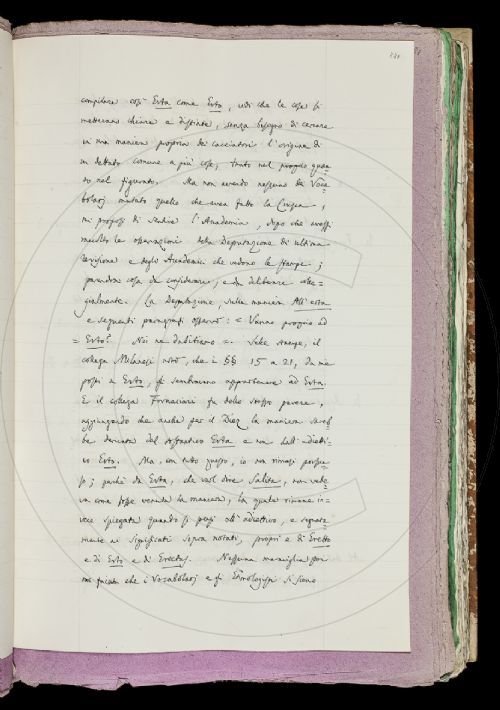 compilare così Erta come Erto, vidi che le cose si
mettevano chiare e distinte, senza bisogno di cercare
in una maniera propria dei cacciatori l'origine di
un dettato comune a più cose, tanto nel proprio quan=
to nel figurato. Ma non avendo nessuno dei Voca=
bolarj mutato quello che avea fatto la Crusca,
mi proposi di sentire l'Accademia, dopo che avessi
raccolto le osservazioni della Deputazione di ultima
revisione e degli Accademici che vedono le stampe;
parendomi cosa da considerare, e da deliberare colle=
gialmente. La Deputazione, sulla maniera All'erta
e seguenti paragrafi osservò: "Vanno proprio ad
= Erto? Noi ne dubitiamo". Sulle stampe, il
collega Milanesi notò, che i §§ 15 a 21, da me
posti a Erto, gli sembravano appartenere ad Erta.
E il collega Fornaciari fu dello stesso parere,
aggiungendo che anche per il Diez la maniera sareb
be derivata dal sostantivo Erta e non dall'adietti=
vo Erto. Ma, con tutto questo, io non rimasi persua=
so; perchè da Erta, che vuol dire Salita, non vede=
va come fosse venuta la maniera, la quale rimane in=
vece spiegata quando si pensi all'adiettivo, e segnata=
mente ai significati sopra notati, proprj e di Eretto
e di Erto e di Erectus. Nessuna maraviglia poi
mi faceva che i Vocabolarj e gli Etimologisti si sieno